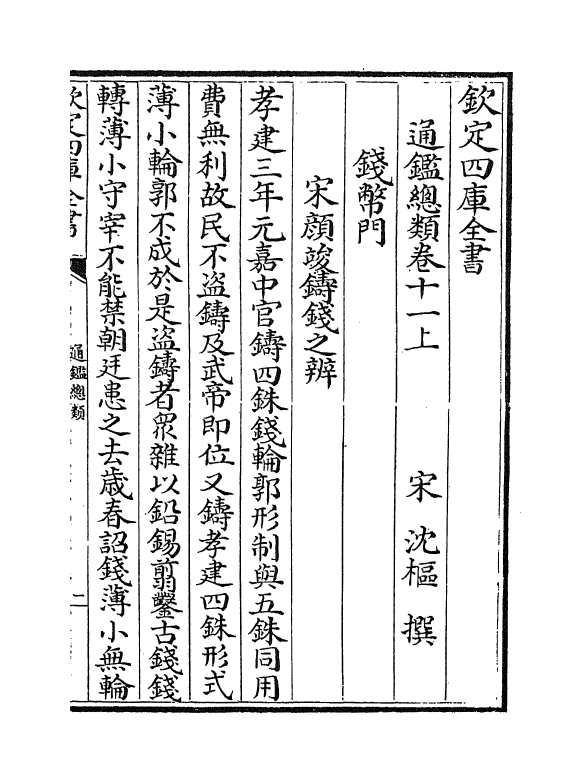 欽定四庫全書
通鑑總類卷十一上　宋　沈樞　撰
錢幣門
宋顔竣鑄錢之辨
孝建三年元嘉中官鑄四銖錢輪郭形制與五銖同用
費無利故民不盜鑄及武帝即位又鑄孝建四銖形式
薄小輪郭不成於是盜鑄者眾雜以鉛錫翦鑿古錢錢
轉薄小守宰不能禁朝廷患之去歲春詔錢薄小無輪
欽定四庫全書
通鑑總類